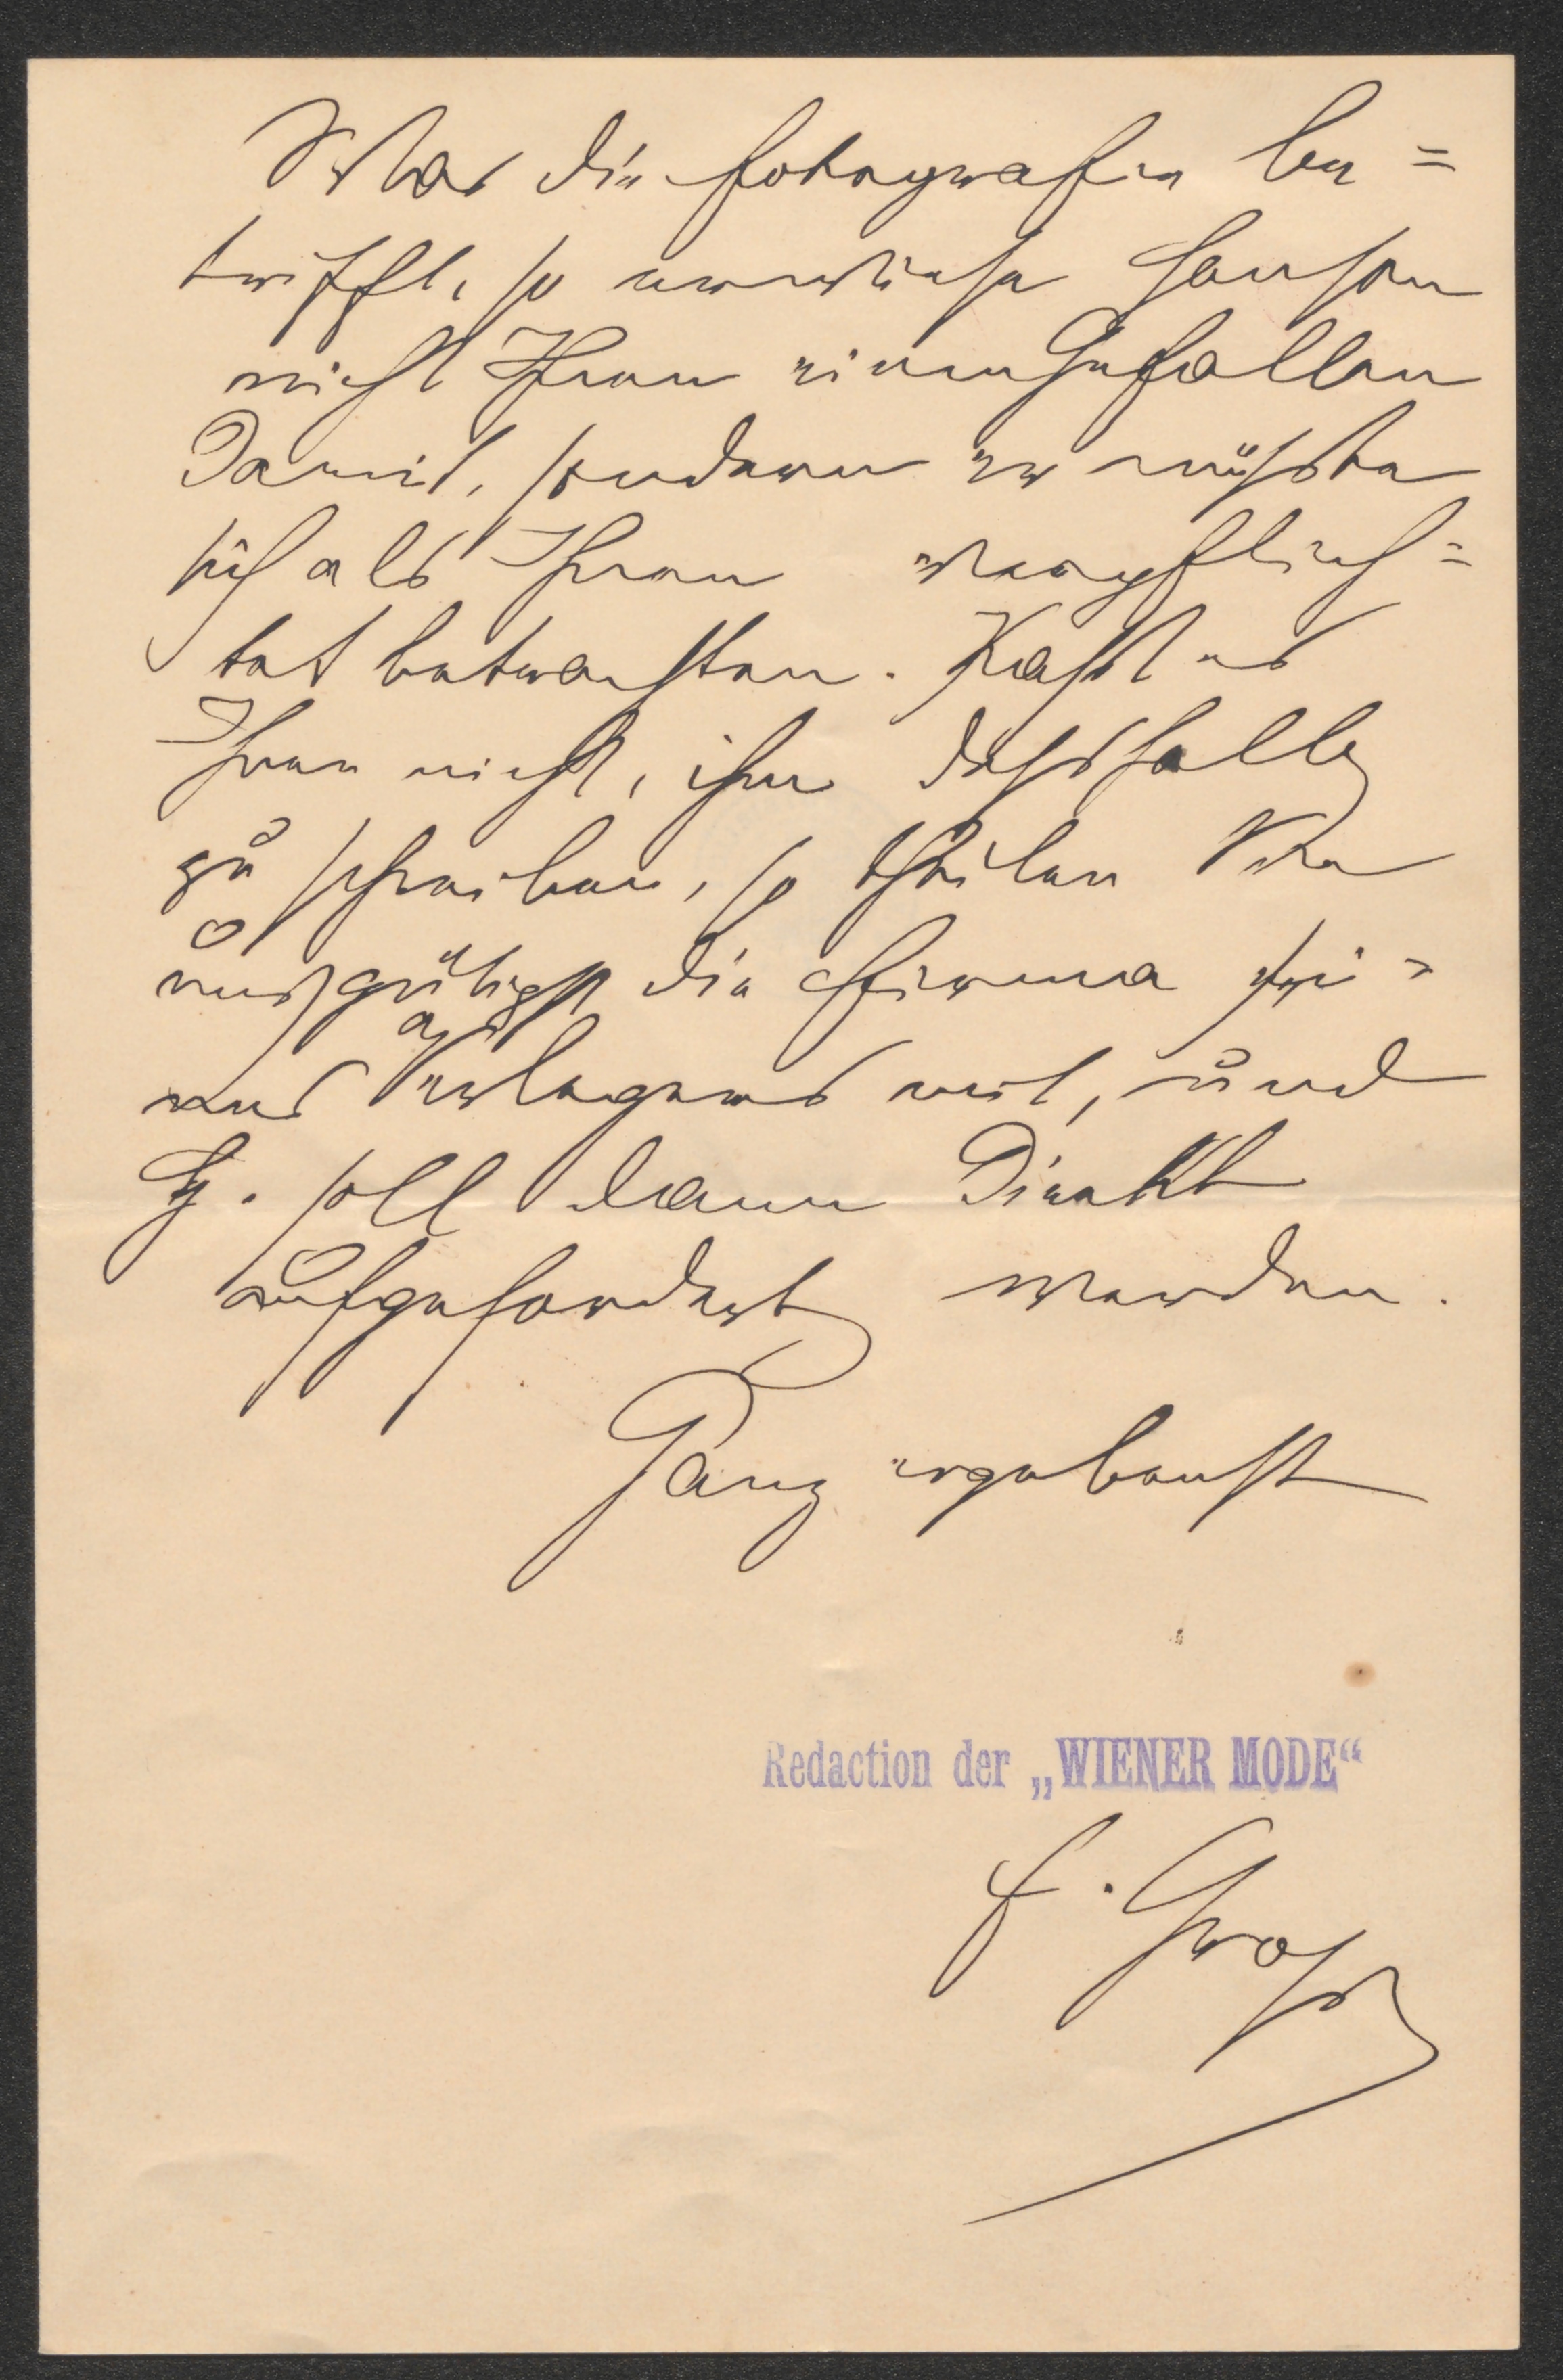 Was die Fotografie be=
trifft, so erwiese Hansson
nicht Ihnen einen Gefallen
damit, sondern er müßte
sich als Ihnen verpflich=
tet betrachten. Paßt es
Ihnen nicht, ihm dießfalls
zu schreiben, so theilen Sie
uns gütigst die Firma sei=
nes Verlegers mit, und
H. soll dann direkt
aufgefordert werden.
Ganz ergebenst
Redaction der „WIENER MODE“
F. Groß